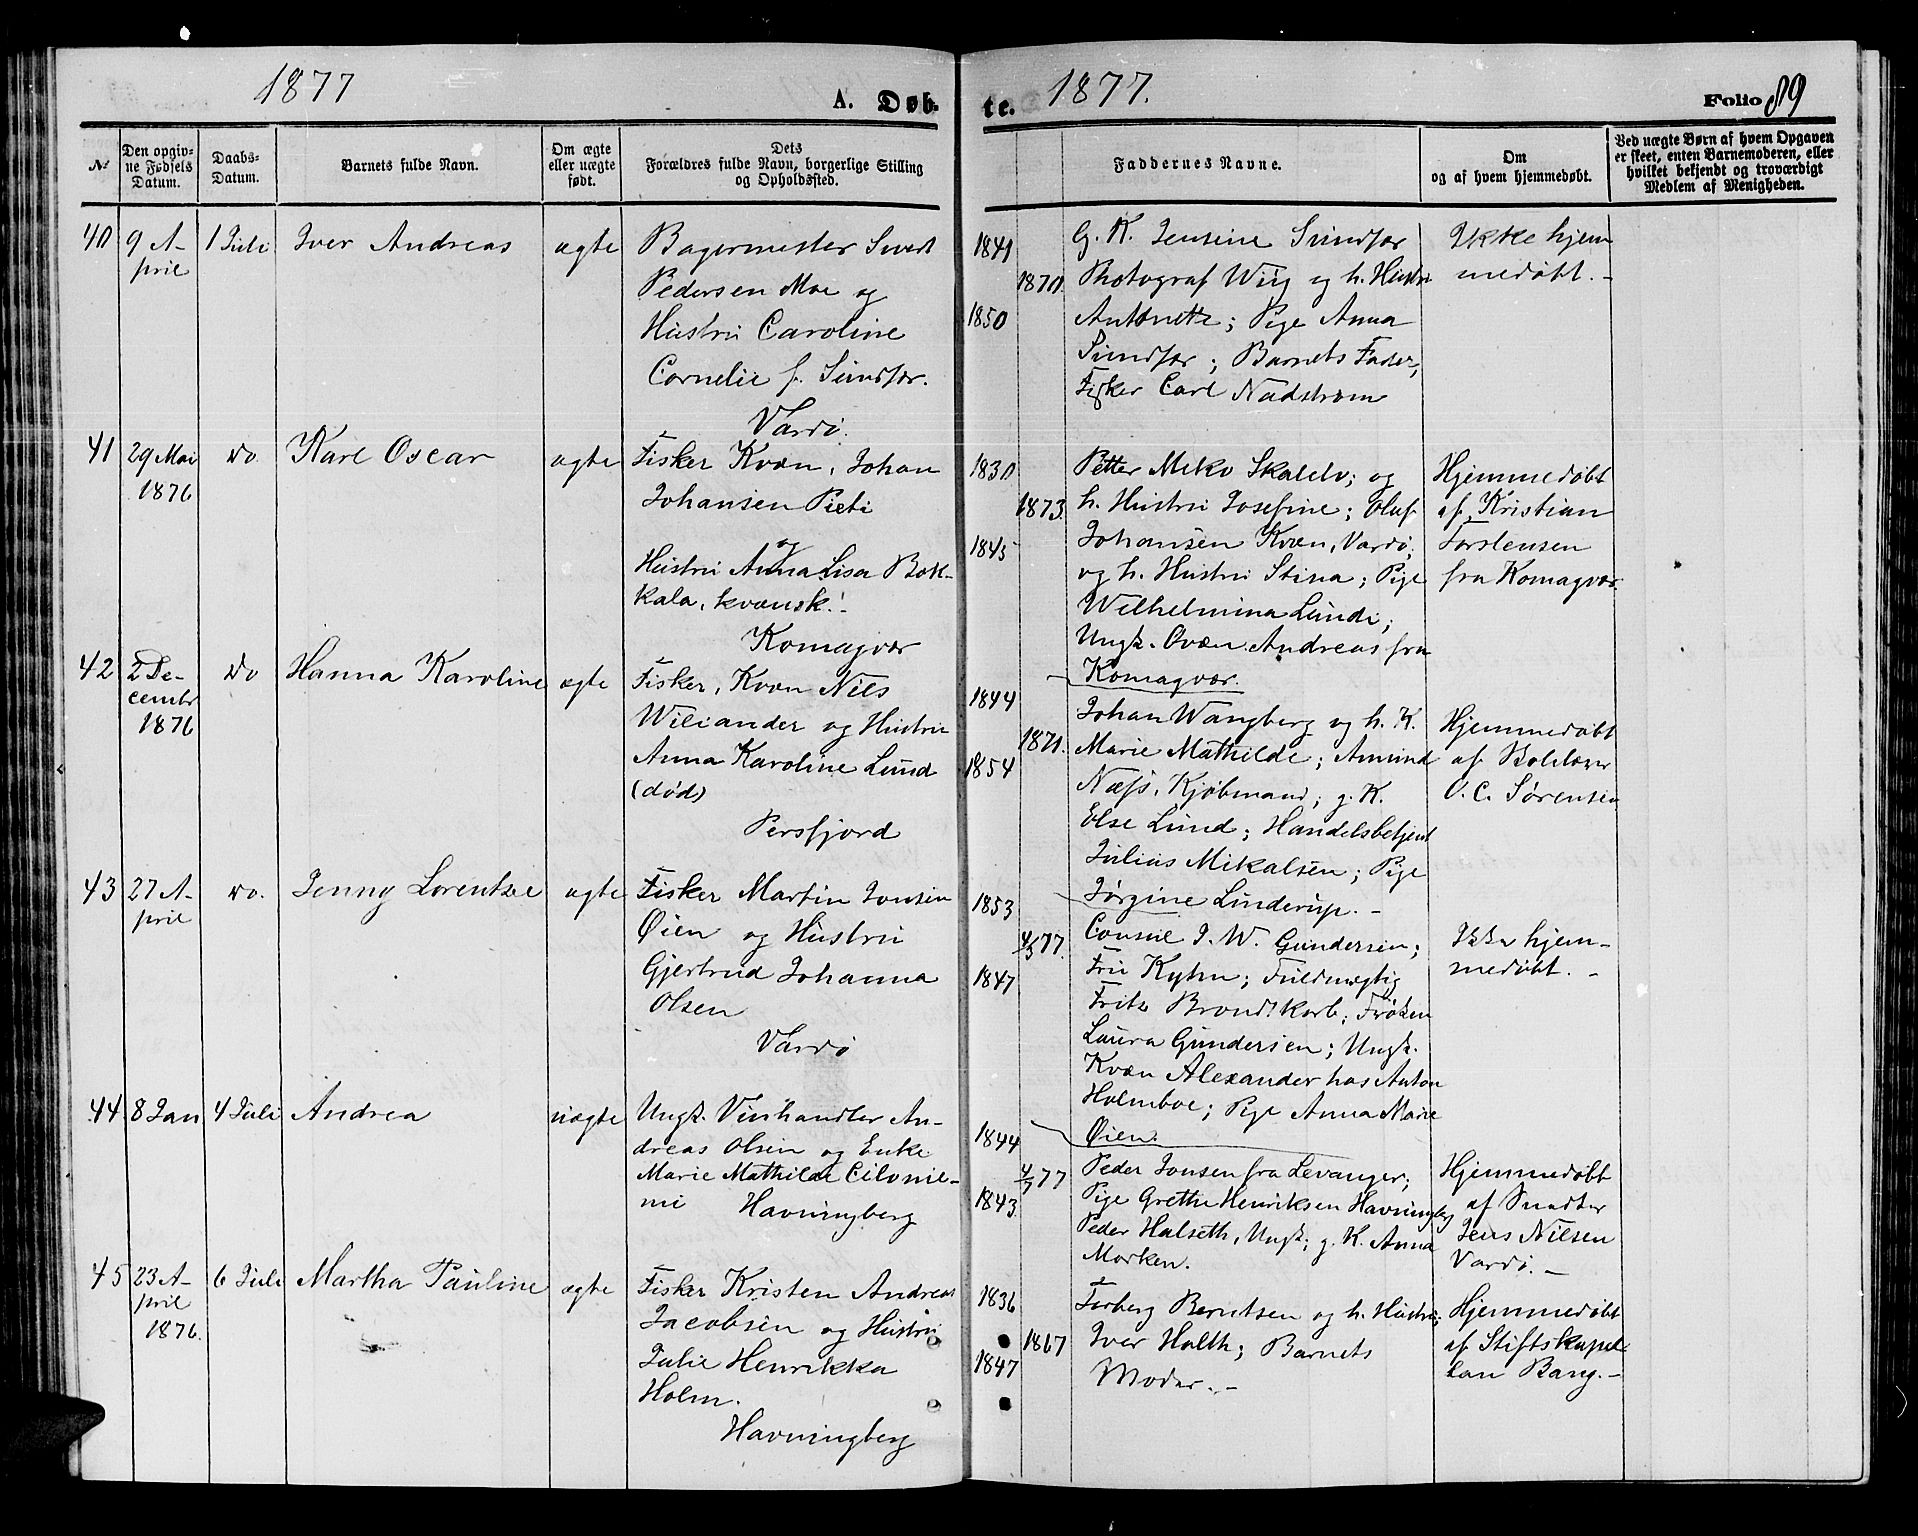 1877
A. Døb-
№
Den opgiv-
ne Fødsels
Datum.
Daabs-
Datum.
Barnets fulde Navn.
Om ægte
eller uægte
født.
Dets
Forældres fulde Navn, borgerlige Stilling
og Opholdssted.
40
9 A-
pril
1 Juli
Iver Andreas
ægte
Bagermester Sivert
Pedersen Moe og
Hustru Caroline
Cornelie f. Sundfær.
Vardø.
41
29 Mai
1876
do
Karl Oscar
ægte
Fisker Kvæn, Johan
Johansen Pieti
og
Hustru Anna Lisa Bok-
kala, kvænsk.-
Komagvær
42
2 De-
cembr
1876
do
Hanna Karoline
ægte
Fisker, Kvæn Nils
Wiliander og Hustru
Anna Karoline Lund
(død)
Persfjord
43
27 A-
pril
do.
Jenny Lorentze
ægte
Fisker Martin Jonsen
Øien og Hustru
Gjertrud Johanna
Olsen
Vardø
44
8 Jan
4 Juli
Andrea
uægte
Ungk. Vinhandler An-
dreas Olsen og Enke
Marie Mathilde Cilonie-
mi Havningberg
45
23 A-
pril
1876.
6 Juli
Martha Pauline
ægte
Fisker Kristen Andreas
Jacobsen og Hustru
Julie Henrikka
Holm.
Havningberg
te.
1877.
Folio 89
Faddernes Navne.
Om
og af hvem hjemmedøbt.
Ved uægte Børn af hvem Opgaven
er skeet, enten Barnemoderen, eller
hvilket bekjendt og troværdigt
Medlem af Menigheden.
1841
1870.
1850
G. K. Jensine Sundfær
Photograf Wiig og h. Hustru
Antonette; Pige Anna
Sundfær; Barnets Fader,
Fisker Carl Nadstrøm
Ikke hjem
medøbt. -
1830
1873.
1845
Petter Miko Skalelv; og
h. Hustru Josefine; Oluf
Johansen Kvæn, Vardø,
og h. Hustru Stina; Pige
Wilhelmina Lundi;
Ungk. Qvæn Andreas fra
Komagvær.
Hjemmedøbt
af Kristian
Torstensen
fra Komagvær.
1844
1871.
1854
Johan Wangberg og h. K.
Marie Mathilde; Amund
Næss, Kjøbmand; g. K.
Else Lund; Handelsbetjent
Julius Mikalsen; Pige
Jørgine Linderup. -
Hjemmedøbt
af
O. C. Sørensen
1853
4/3 77.
1847
Consul J. W. Gundersen;
Fru Kyhn; Fuldmægtig
Fritz Brondtkorb; Frøken
Laura Gundersen; Ungk.
Kvæn Alexander hos Anton
Holmboe; Pige Anna Marie
Øien.
Ikke hjem-
medøbt. -
1844
4/7 77
1843
Peder Jonsen fra Levanger;
Pige Grethe Henriksen Havningberg
Peder Halseth, Ungk; g. K. Anna
Morken.
Hjemmedøbt
af Snedker
Jens Nilsen
Vardø. -
1836
1867
1847
Torberg Berntsen og h. Hustru;
Iver Holth; Barnets
Moder. -
Hjemmedøbt
af Stiftskapel
lan Bang. -